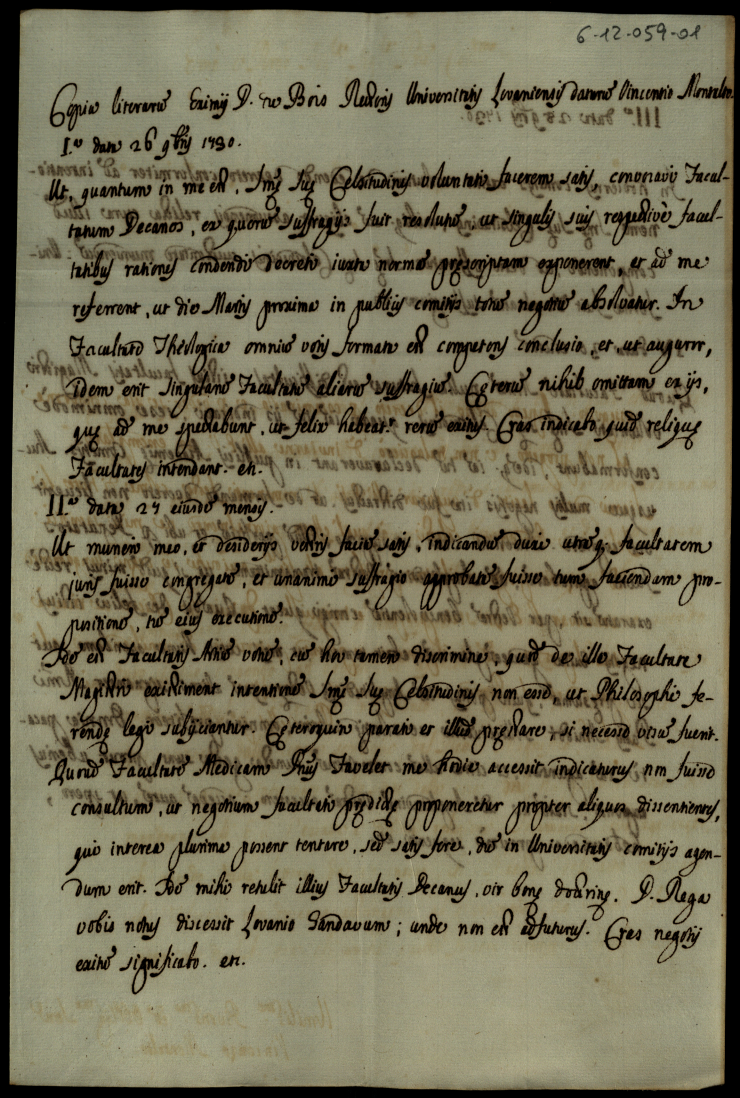 6-12-059-01
Copia literarū Eximij D. du Bois Rectoris Universitatis Lovaniensis datarū Vincentio Montalto.
I.ª data 26 9bris 1730.
Ut, quantum in me est, Smę Suę Celsitudinis voluntati facerem satis, convocavi Facul-
tatum Decanos, ex quorū suffragijs fuit resolutū, ut singulis suis respectivè facul-
tatibus rationes condendi decreti iuxta normā pręscriptam exponerent, et ad me
referrent, ut die Martis proxima in publicis comitijs totū negotiū absolvatur. In
Facultate Theologica omniū votis formata est competens conclusio, et, ut auguror,
idem erit singularū Facultatū aliarū suffragiū. Cęterū nihil omittam ex ijs,
quę ad me spectabunt, ut felix habeat.r rerū exitus. Cras indicabo quid reliquę
Facultates intendant. etc.
II.ª data 27 eiusdē mensis.
Ut muneri meo, et desiderijs vestris faciā satis, indicandū duxi utrāq. facultatem
juris fuisse congregatā, et unanimi suffragio approbatā fuisse tum faciendam pro-
positionē, tū eius executionē.
Idē est Facultatis Artiū votū, cū hoc tamen discrimine, quod de illa Facultate
Magistri existiment intentionē Smę Suę Celsitudinis non esse, ut Philosophi fe-
rendę legi subijciantur. Cęteroquin parati et illud pręstare, si necesse visū fuerit.
Quoad Facultatē Medicam Dnus Favelet me hodie accessit indicaturus non fuisse
consultum, ut negotium facultati prędictę proponeretur propter aliquos dissentientes,
qui interea plurima possent tentare, sed satis fore, dū in Universitatis comitijs agen-
dum erit. Idē mihi retulit illius Facultatis Decanus, vir bonę doctrinę. D. Rega
vobis notus discessit Lovanio Gandavum; unde non est adfuturus. Cras negotij
exitū significabo. etc.